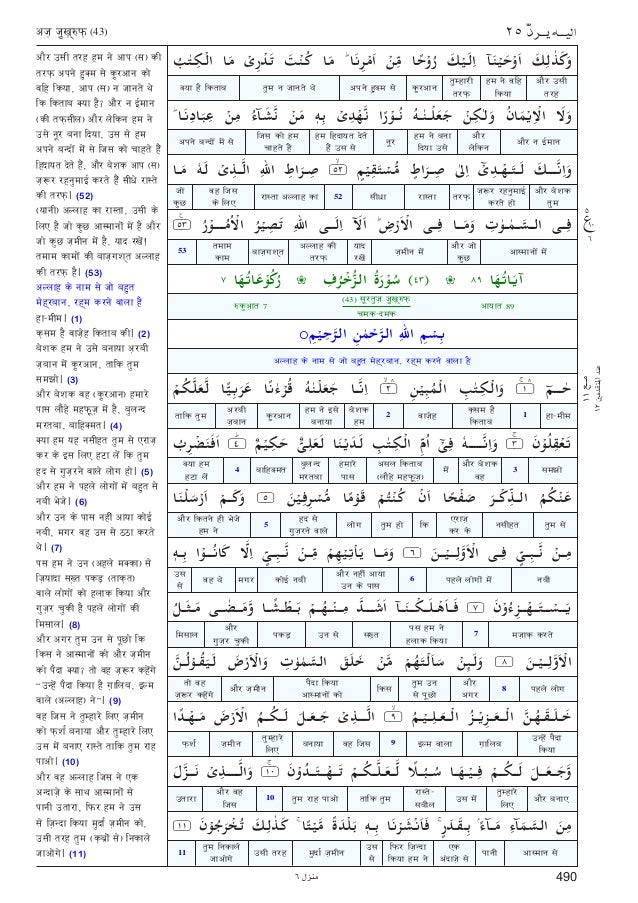 अज़ ज़ुख़्रुफ़ (43)
اليه يردّ ٢٥
और उसी तरह हम ने आप (स) की
तरफ़ अपने हुक्म से कुरआन को
वहि किया, आप (स) न जानते थे
कि किताब क्या है? और न ईमान
(की तफ़सील) और लेकिन हम ने
उसे नूर बना दिया, उस से हम
अपने बन्दों में से जिस को चाहते हैं
हिदायत देते हैं, और बेशक आप (स)
ज़रूर रहनुमाई करते हैं सीधे रास्ते
की तरफ़। (52)
(यानी) अल्लाह का रास्ता, उसी के
लिए है जो कुछ आस्मानों में है और
जो कुछ ज़मीन में है, याद रखें!
तमाम कामों की बाज़गश्त अल्लाह
की तरफ़ है। (53)
अल्लाह के नाम से जो बहुत
मेह्रबान, रह्म करने वाला है
हा-मीम। (1)
क़सम है वाज़ेह किताब की। (2)
बेशक हम ने उसे बनाया अ़रबी
ज़बान में कुरआन, ताकि तुम
समझो। (3)
और बेशक वह (कुरआन) हमारे
पास लौहे महफ़ूज़ में है, बुलन्द
मरतबा, बाहिक्मत। (4)
क्या हम यह नसीहत तुम से एराज़
कर के इस लिए हटा लें कि तुम
हद से गुज़रने वाले लोग हो। (5)
और हम ने पहले लोगों में बहुत से
नबी भेजे। (6)
और उन के पास नहीं आया कोई
नबी, मगर वह उस से ठठा करते
थे। (7)
पस हम ने उन (अहले मक्का) से
ज़ियादा सख़्त पकड़ (ताक़त)
वाले लोगों को हलाक किया और
गुज़र चुकी है पहले लोगों की
मिसाल। (8)
और अगर तुम उन से पूछो कि
किस ने आस्मानों को और ज़मीन
को पैदा क्या? तो वह ज़रूर कहेंगे
“उन्हें पैदा किया है ग़ालिब, इल्म
वाले (अल्लाह) ने”। (9)
वह जिस ने तुम्हारे लिए ज़मीन
को फ़र्श बनाया और तुम्हारे लिए
उस में बनाए रास्ते ताकि तुम राह
पाओ। (10)
और वह अल्लाह जिस ने एक
अन्दाज़े के साथ आस्मानों से
पानी उतारा, फिर हम ने उस
से ज़िन्दा किया मुर्दा ज़मीन को,
उसी तरह तुम (क़ब्रों से) निकाले
जाओगे। (11)
وَكَذٰلِكَ اَوْحَيْنَآ اِلَيْكَ رُوْحًا مِّنْ اَمْرِنَا ؕ مَا كُنْتَ تَدْرِىْ مَا الْكِتٰبُ
क्या है किताब | तुम न जानते थे | अपने हुक्म से | कुरआन | तुम्हारी तरफ़ | हम ने वहि किया | और उसी तरह
وَلَا الْاِيْمَانُ وَلٰكِنْ جَعَلْنٰهُ نُوْرًا نَّهْدِىْ بِهٖ مَنْ نَّشَآءُ مِنْ عِبَادِنَا ؕ
अपने बन्दों में से | जिस को हम चाहते हैं | हम हिदायत देते हैं उस से | नूर | हम ने बना दिया उसे | और लेकिन | और न ईमान
وَاِنَّكَ لَتَهْدِىْٓ اِلٰى صِرَاطٍ مُّسْتَقِيْمٍ ۙ ٥٢ صِرَاطِ اللهِ الَّذِىْ لَهٗ مَا
जो कुछ | वह जिस के लिए | रास्ता अल्लाह का | 52 | सीधा | रास्ता | तरफ़ | ज़रूर रहनुमाई करते हो | और बेशक तुम
فِى السَّمٰوٰتِ وَمَا فِى الْاَرْضِ ؕ اَلَآ اِلَى اللهِ تَصِيْرُ الْاُمُوْرُ ٥٣
53 | तमाम काम | बाज़गश्त | अल्लाह की तरफ़ | याद रखें | ज़मीन में | और जो कुछ | आस्मानों में
اٰيَاتُهَا ٨٩ ❀ (٤٣) سُوْرَةُ الزُّخْرُفِ ❀ رُكُوْعَاتُهَا ٧
रुकुआ़त 7 | (43) सूरतुज़ ज़ुख़्रुफ़ | आयात 89
चमक-दमक
بِسْمِ اللهِ الرَّحْمٰنِ الرَّحِيْمِ ○
अल्लाह के नाम से जो बहुत मेह्रबान, रह्म करने वाला है
حٰمٓ ١ وَالْكِتٰبِ الْمُبِيْنِ ٢ اِنَّا جَعَلْنٰهُ قُرْءٰنًا عَرَبِيًّا لَّعَلَّكُمْ
ताकि तुम | अ़रबी ज़बान | कुरआन | हम ने इसे बनाया | बेशक हम | 2 | वाज़ेह | क़सम है किताब | 1 | हा-मीम
تَعْقِلُوْنَ ٣ وَاِنَّهٗ فِىْٓ اُمِّ الْكِتٰبِ لَدَيْنَا لَعَلِىٌّ حَكِيْمٌ ٤ اَفَنَضْرِبُ
क्या हम हटा लें | 4 | बाहिक्मत | बुलन्द मरतबा | हमारे पास | असल किताब (लौहे महफ़ूज़) | में | और बेशक वह | 3 | समझो
عَنْكُمُ الذِّكْرَ صَفْحًا اَنْ كُنْتُمْ قَوْمًا مُّسْرِفِيْنَ ٥ وَكَمْ اَرْسَلْنَا
और कितने ही भेजे हम ने | 5 | हद से गुज़रने वाले | लोग | तुम हो | कि | एराज़ कर के | नसीहत | तुम से
مِنْ نَّبِىٍّ فِى الْاَوَّلِيْنَ ٦ وَمَا يَاْتِيْهِمْ مِّنْ نَّبِىٍّ اِلَّا كَانُوْا بِهٖ
उस से | वह थे | मगर | कोई नबी | और नहीं आया उन के पास | 6 | पहले लोगों में | नबी
يَسْتَهْزِءُوْنَ ٧ فَاَهْلَكْنَآ اَشَدَّ مِنْهُمْ بَطْشًا وَّمَضٰى مَثَلُ
मिसाल | और गुज़र चुकी | पकड़ | उन से | सख़्त | पस हम ने हलाक किया | 7 | मज़ाक़ करते
الْاَوَّلِيْنَ ٨ وَلَئِنْ سَاَلْتَهُمْ مَّنْ خَلَقَ السَّمٰوٰتِ وَالْاَرْضَ لَيَقُوْلُنَّ
तो वह ज़रूर कहेंगे | और ज़मीन | पैदा किया आस्मानों को | किस | तुम उन से पूछो | और अगर | 8 | पहले लोग
خَلَقَهُنَّ الْعَزِيْزُ الْعَلِيْمُ ۙ ٩ الَّذِىْ جَعَلَ لَكُمُ الْاَرْضَ مَهْدًا
फ़र्श | ज़मीन | तुम्हारे लिए | बनाया | वह जिस | 9 | इल्म वाला | ग़ालिब | उन्हें पैदा किया
وَّجَعَلَ لَكُمْ فِيْهَا سُبُلًا لَّعَلَّكُمْ تَهْتَدُوْنَ ١٠ وَالَّذِىْ نَزَّلَ
उतारा | और वह जिस | 10 | तुम राह पाओ | ताकि तुम | रास्ते-सबील | उस में | तुम्हारे लिए | और बनाए
مِنَ السَّمَآءِ مَآءًۢ بِقَدَرٍ ۚ فَاَنْشَرْنَا بِهٖ بَلْدَةً مَّيْتًا ۚ كَذٰلِكَ تُخْرَجُوْنَ ١١
11 | तुम निकाले जाओगे | उसी तरह | मुर्दा ज़मीन | उस से | फिर ज़िन्दा किया हम ने | एक अंदाज़े से | पानी | आस्मान से
منزل ٦
490